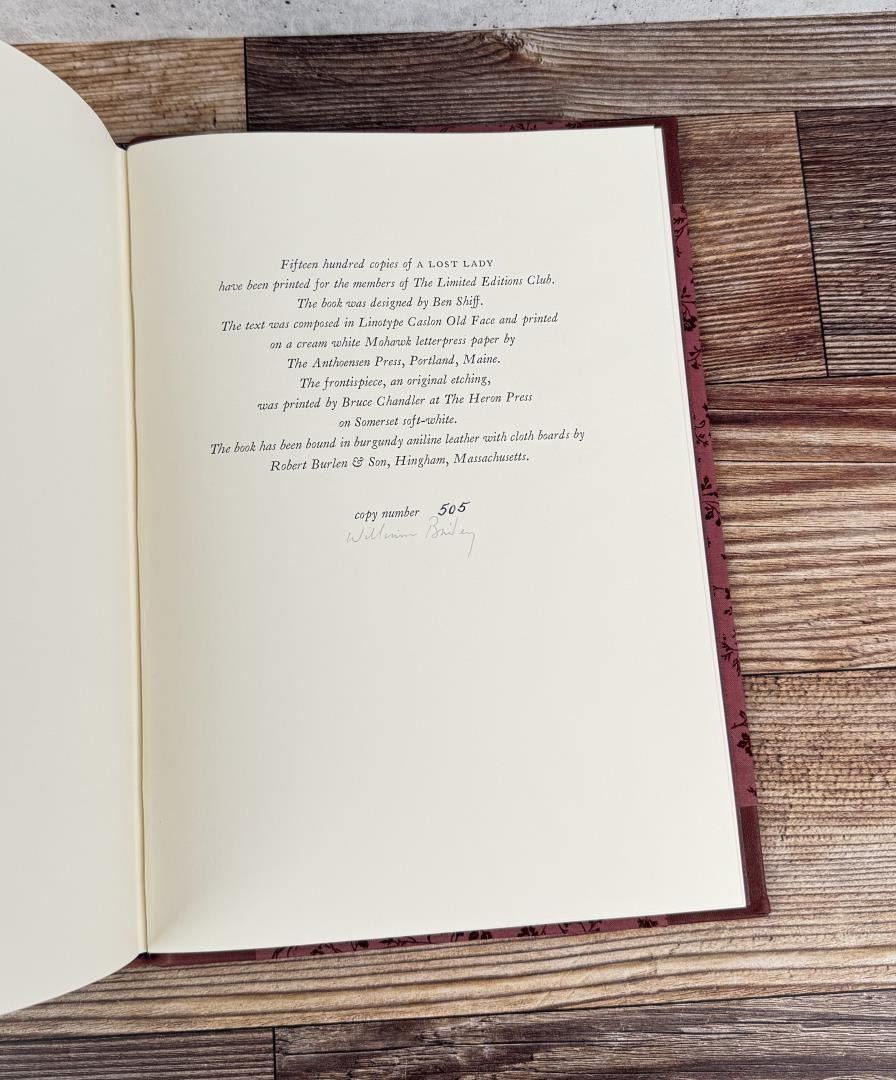 Fifteen hundred copies of A LOST LADY
have been printed for the members of The Limited Editions Club.
The book was designed by Ben Shiff.
The text was composed in Linotype Caslon Old Face and printed
on a cream white Mohawk letterpress paper by
The Anthoensen Press, Portland, Maine.
The frontispiece, an original etching,
was printed by Bruce Chandler at The Heron Press
on Somerset soft-white.
The book has been bound in burgundy aniline leather with cloth boards by
Robert Burlen & Son, Hingham, Massachusetts.
copy number 505
William Bailey